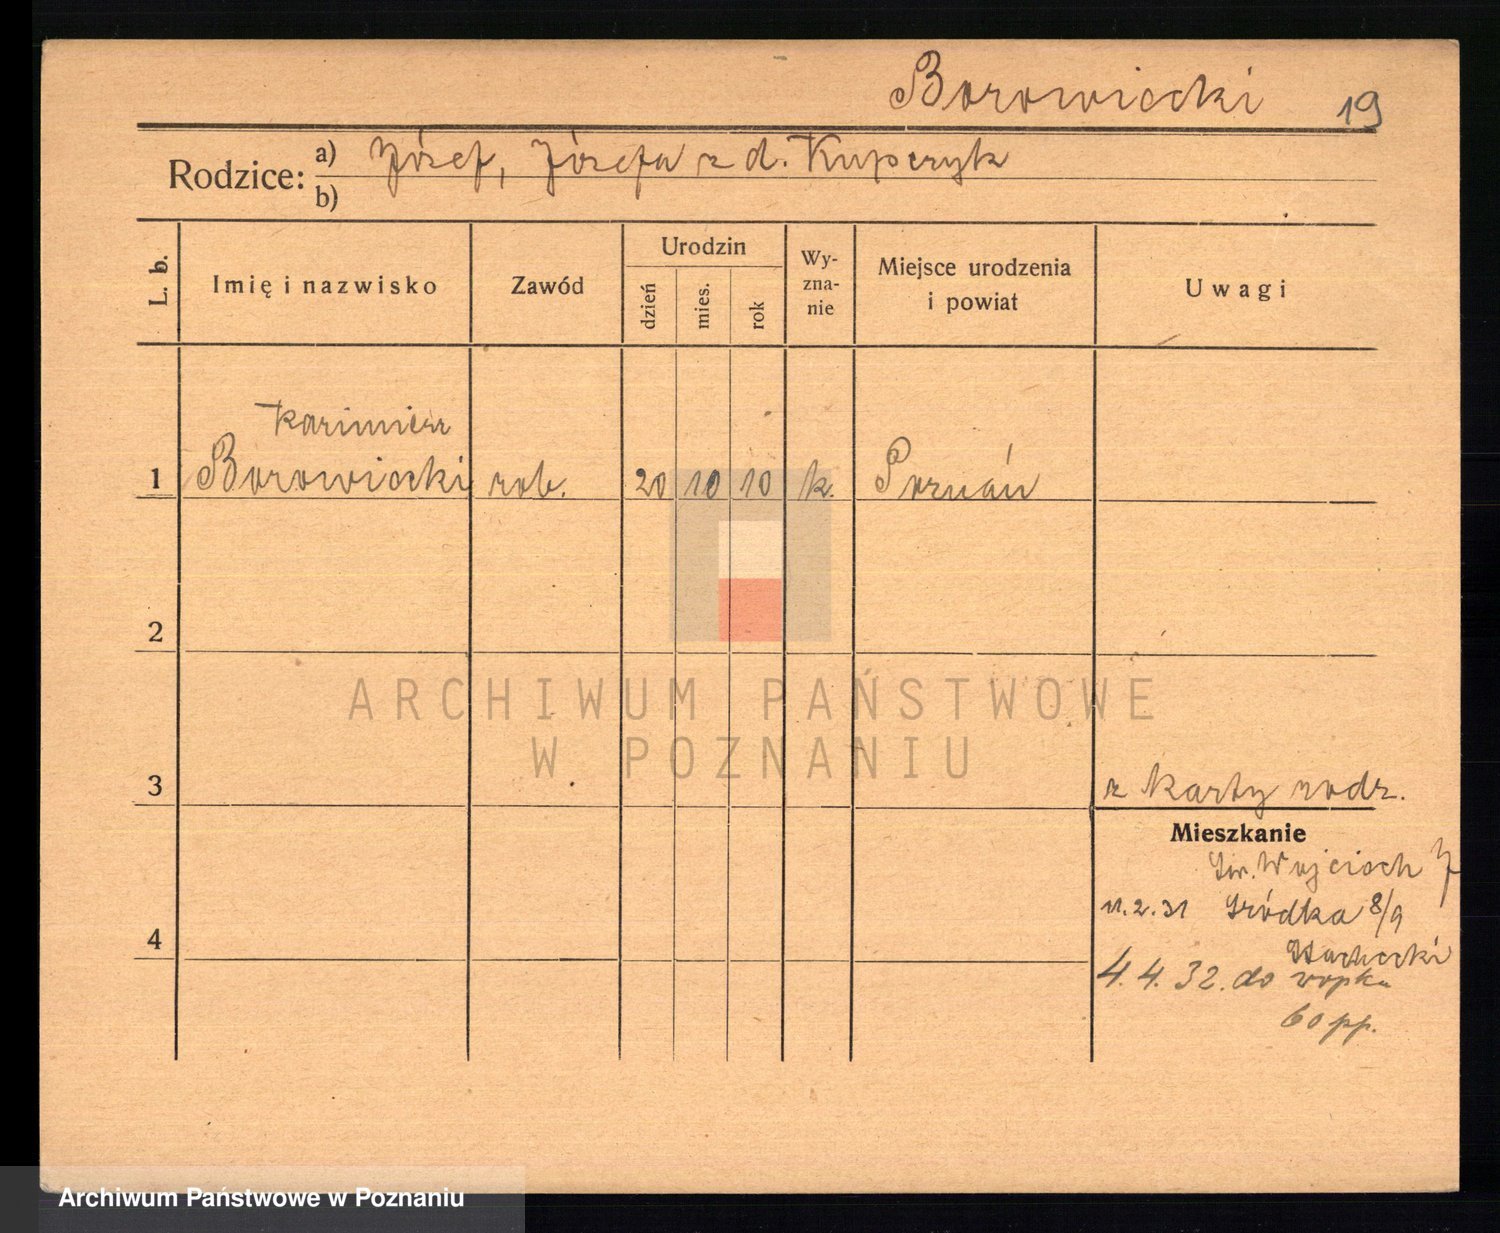 Borowiecki 19
Rodzice: a) Józef, Józefa z d. Kupczyk
b)
L. b.
Imię i nazwisko
Zawód
Urodzin
dzień
mies.
rok
Wy-
zna-
nie
Miejsce urodzenia
i powiat
Uwagi
Kazimierz
1 Borowiecki rob. 20 10 10 k. Poznań
2
ARCHIWUM PAŃSTWOWE
W POZNANIU
3
z karty rodz.
Mieszkanie
Św. Wojciech 7
11.2.31 Śródka 8/9
4
4.4.32. do wojska
60 pp.
Archiwum Państwowe w Poznaniu